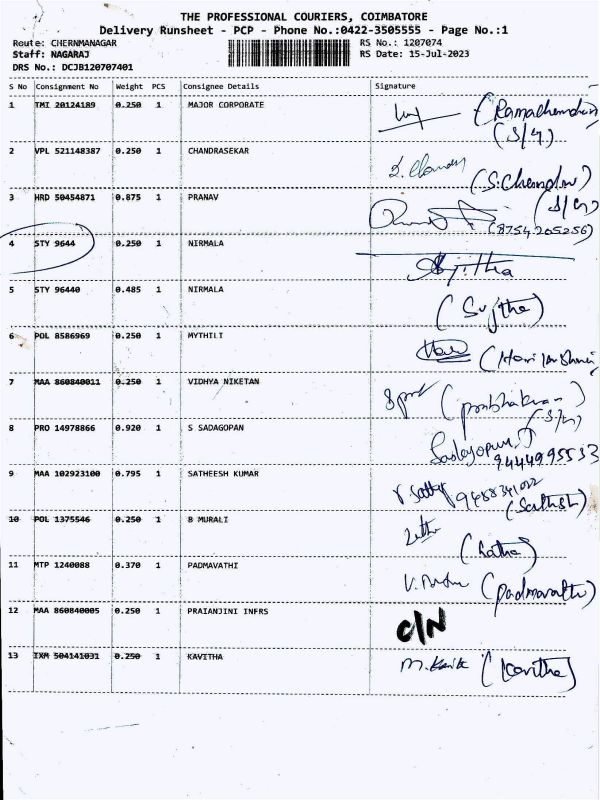 THE PROFESSIONAL COURIERS, COIMBATORE
Delivery Runsheet - PCP - Phone No.:0422-3505555 - Page No.:1
Route: CHERNMANAGAR RS No.: 1207074
Staff: NAGARAJ RS Date: 15-Jul-2023
DRS No.: DCJB120707401
S No Consignment No Weight PCS Consignee Details Signature
1 TMI 20124189 0.250 1 MAJOR CORPORATE
2 VPL 521148387 0.250 1 CHANDRASEKAR
3 HRD 50454871 0.875 1 PRANAV
(8754205256)
4 STY 9644 0.250 1 NIRMALA
Sujitha
5 STY 96440 0.485 1 NIRMALA
(Sujtha)
6 POL 8586969 0.250 1 MYTHILI
7 MAA 860840011 0.250 1 VIDHYA NIKETAN
(prabhakaran)
8 PRO 14978866 0.920 1 S SADAGOPAN
Sadagopan
9444995533
9 MAA 102923100 0.795 1 SATHEESH KUMAR
(Sathish)
10 POL 1375546 0.250 1 B MURALI
(Latha)
11 MTP 1240088 0.370 1 PADMAVATHI
(Padmavathi)
12 MAA 860840005 0.250 1 PRAIANJINI INFRS
C/N
13 IXM 504141031 0.250 1 KAVITHA
(Kavitha)